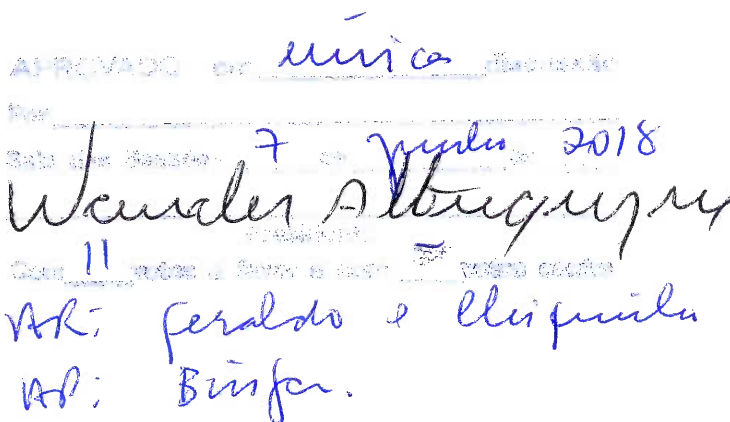 APROVADO em única discussão
Por
Sala das Sessões 7 de junho de 2018
Wander Albuquerque
Presidente
Com 11 votos a favor e com - votos contra
AR: Geraldo e
AP: